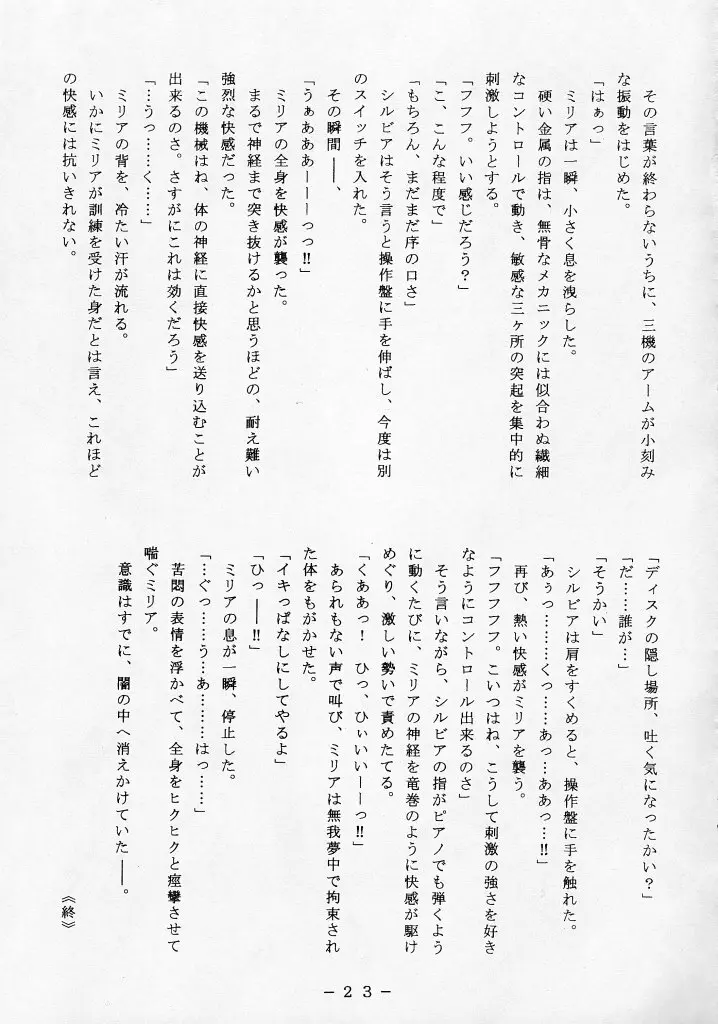 その言葉が終わらないうちに、三機のアームが小刻み
な振動をはじめた。
「はぁっ」
ミリアは一瞬、小さく息を洩らした。
硬い金属の指は、無骨なメカニックには似合わぬ繊細
なコントロールで動き、敏感な三ヶ所の突起を集中的に
刺激しようとする。
「フフフ。いい感じだろう?」
「こ、こんな程度で」
「もちろん、まだまだ序の口さ」
シルビアはそう言うと操作盤に手を伸ばし、今度は別
のスイッチを入れた。
その瞬間――、
「うぁあああーーーっっ!!」
ミリアの全身を快感が襲った。
まるで神経まで突き抜けるかと思うほどの、耐え難い
強烈な快感だった。
「この機械はね、体の神経に直接快感を送り込むことが
出来るのさ。さすがにこれは効くだろう」
「…うっ……く……」
ミリアの背を、冷たい汗が流れる。
いかにミリアが訓練を受けた身だとは言え、これほど
の快感には抗いきれない。
「ディスクの隠し場所、吐く気になったかい?」
「だ……誰が…」
「そうかい」
シルビアは肩をすくめると、操作盤に手を触れた。
「あぅっ………くっ……あっ…ああっ…!!」
再び、熱い快感がミリアを襲う。
「フフフフフ。こいつはね、こうして刺激の強さを好き
なようにコントロール出来るのさ」
そう言いながら、シルビアの指がピアノでも弾くよう
に動くたびに、ミリアの神経を竜巻のように快感が駆け
めぐり、激しい勢いで責めたてる。
「くああっ! ひっ、ひぃいいーーっ!!」
あられもない声で叫び、ミリアは無我夢中で拘束され
た体をもがかせた。
「イキっぱなしにしてやるよ」
「ひっ――!!」
ミリアの息が一瞬、停止した。
「…ぐっ……う…あ………はっ……」
苦悶の表情を浮かべて、全身をヒクヒクと痙攣させて
喘ぐミリア。
意識はすでに、闇の中へ消えかけていた――。
《終》
－２３－